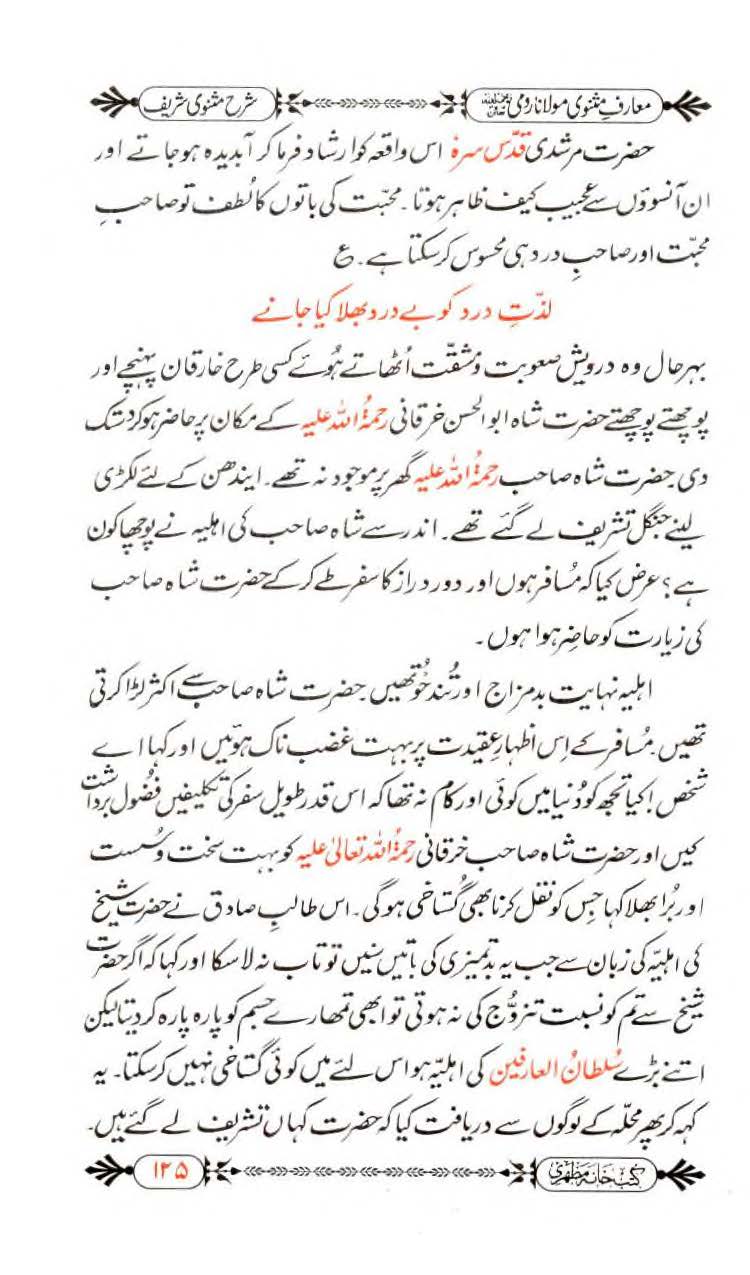 معارفِ مثنوی مولانا رومی رحمۃ اللہ علیہ
شرح مثنوی شریف
حضرت مرشدی قدّس سرہٗ اس واقعہ کو ارشاد فرما کر آبدیدہ ہو جاتے اور
ان آنسوؤں سے عجیب کیف ظاہر ہوتا۔ محبّت کی باتوں کا لُطف تو صاحبِ
محبّت اور صاحبِ درد ہی محسوس کر سکتا ہے۔ ع
لذّتِ درد کو بے درد بھلا کیا جانے
بہر حال وہ درویش صعوبت و مشقّت اُٹھاتے ہُوئے کسی طرح خارقان پہنچے اور
پوچھتے پوچھتے حضرت شاہ ابوالحسن خرقانی رحمۃُ اللہ علیہ کے مکان پر حاضر ہو کر دستک
دی۔ حضرت شاہ صاحب رحمۃُ اللہ علیہ گھر پر موجود نہ تھے۔ ایندھن کے لئے لکڑی
لینے جنگل تشریف لے گئے تھے۔ اندر سے شاہ صاحب کی اہلیہ نے پوچھا کون
ہے؟ عرض کیا کہ مُسافر ہوں اور دور دراز کا سفر طے کر کے حضرت شاہ صاحب
کی زیارت کو حاضِر ہوا ہوں۔
اہلیہ نہایت بد مزاج اور تُند خُو تھیں۔ حضرت شاہ صاحب سے اکثر لڑا کرتی
تھیں۔ مُسافر کے اِس اظہارِ عقیدت پر بہت غضب ناک ہوئیں اور کہا اے
شخص! کیا تجھ کو دُنیا میں کوئی اور کام نہ تھا کہ اس قدر طویل سفر کی تکلیفیں فضُول برداشت
کیں اور حضرت شاہ صاحب خرقانی رحمۃُ اللہ تعالیٰ علیہ کو بہت سخت و سُست
اور بُرا بھلا کہا جس کو نقل کرنا بھی گُستاخی ہوگی۔ اس طالبِ صادق نے حضرت شیخ
کی اہلیّہ کی زبان سے جب یہ بدتمیزی کی باتیں سُنیں تو تاب نہ لا سکا اور کہا کہ اگر حضرت
شیخ سے تم کو نسبت تزوُّج کی نہ ہوتی تو ابھی تمھارے جسم کو پارہ پارہ کر دیتا لیکن
اتنے بڑے سُلطانُ العارفین کی اہلیّہ ہو اس لئے میں کوئی گستاخی نہیں کر سکتا۔ یہ
کہہ کر پھر محلّہ کے لوگوں سے دریافت کیا کہ حضرت کہاں تشریف لے گئے ہیں۔
کتب خانہ مظہری
۱۲۵